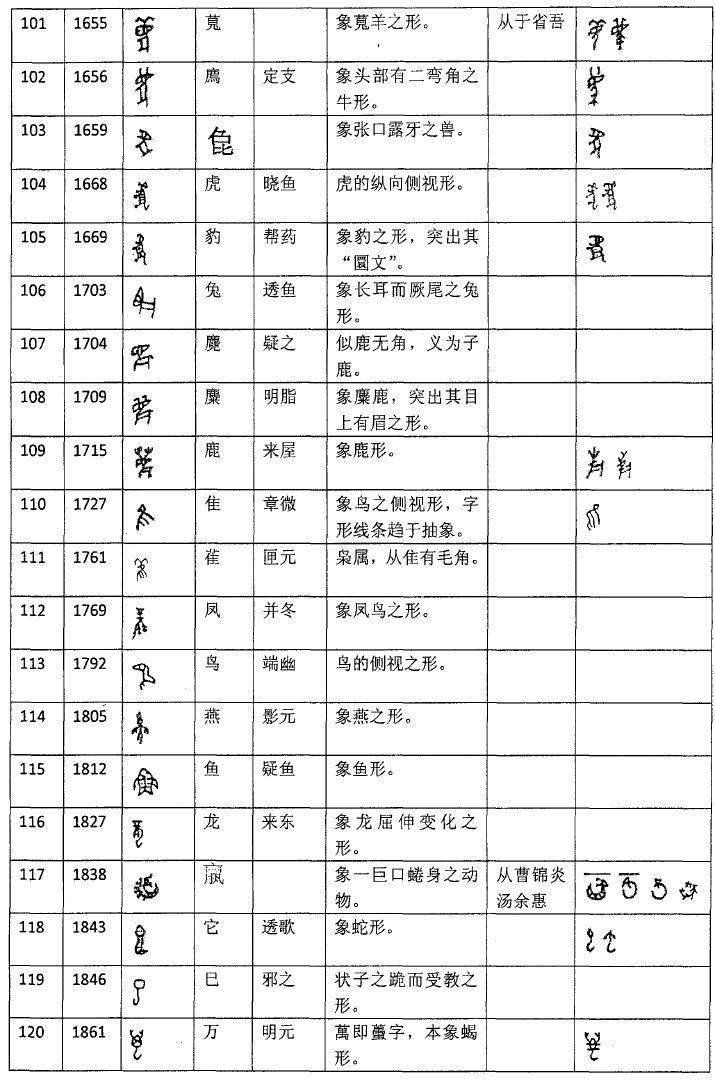 101 1655 萈 象萈羊之形。 从于省吾
102 1656 廌 定支 象头部有二弯角之
牛形。
103 1659 㲋 象张口露牙之兽。
104 1668 虎 晓鱼 虎的纵向侧视形。
105 1669 豹 帮药 象豹之形，突出其
“圜文”。
106 1703 兔 透鱼 象长耳而厥尾之兔
形。
107 1704 麑 疑之 似鹿无角，义为子
鹿。
108 1709 麋 明脂 象麋鹿，突出其目
上有眉之形。
109 1715 鹿 来屋 象鹿形。
110 1727 隹 章微 象鸟之侧视形，字
形线条趋于抽象。
111 1761 雈 匣元 枭属，从隹有毛角。
112 1769 凤 并冬 象凤鸟之形。
113 1792 鸟 端幽 鸟的侧视之形。
114 1805 燕 影元 象燕之形。
115 1812 鱼 疑鱼 象鱼形。
116 1827 龙 来东 象龙屈伸变化之
形。
117 1838 象一巨口蜷身之动 从曹锦炎
物。 汤余惠
118 1843 它 透歌 象蛇形。
119 1846 巳 邪之 状子之跪而受教之
形。
120 1861 万 明元 萬即蠆字，本象蝎
形。